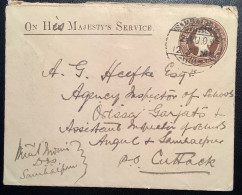 ON His MAJESTY'S SERVICE
A. G. Heefke Esqre
Agency Inspector of Schools
Orissa Garjats &
Assistant Inspector of Schools
Angul & Sambalpur
P.O. Cuttack
Sambalpur